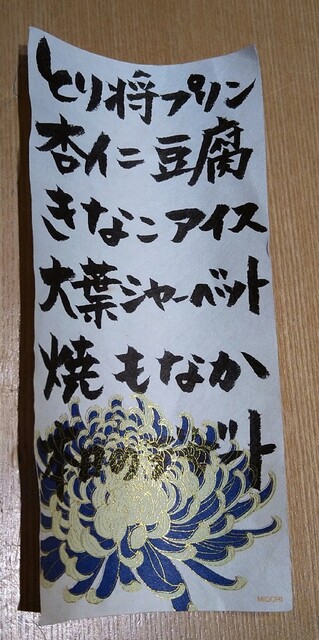 とり将プリン
杏仁豆腐
きなこアイス
大葉シャーベット
焼もなか
MIDORI